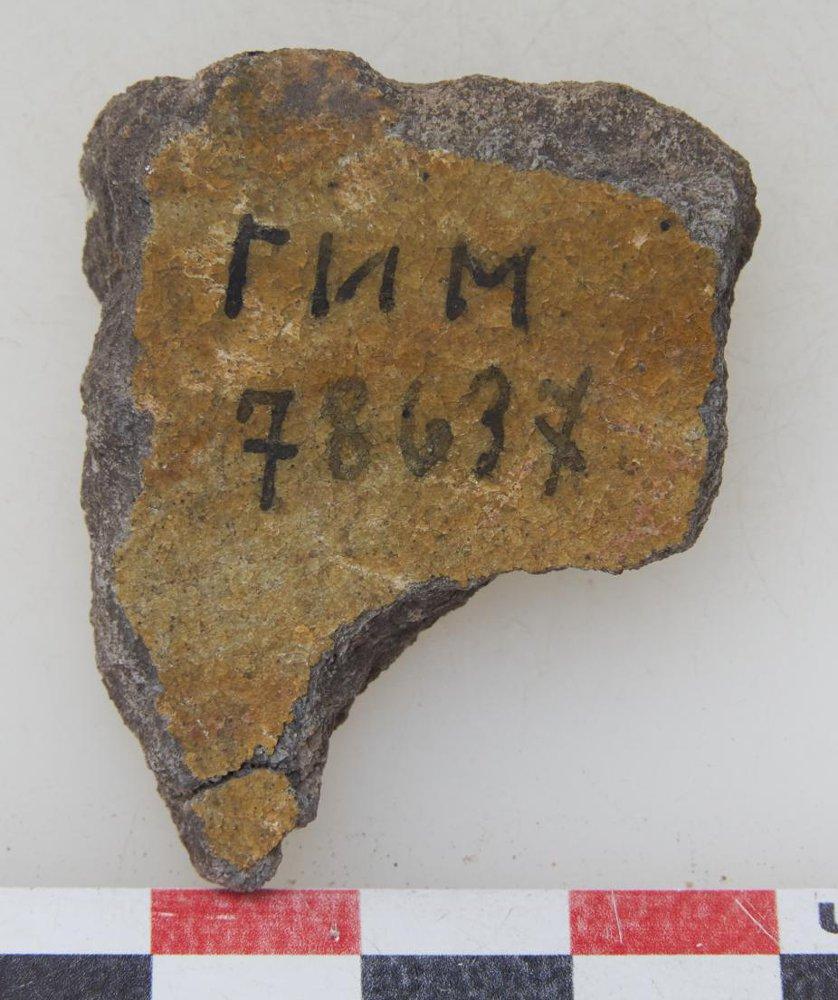 ГИМ
78637